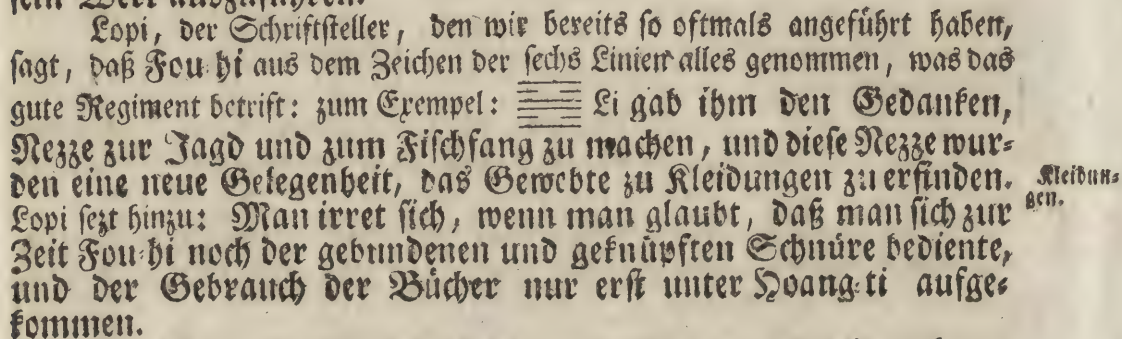 sein Werk auszuführen.
Lopi, der Schriftsteller, den wir bereits so oftmals angeführt haben,
sagt, daß Fou-hi aus dem Zeichen der sechs Linien alles genommen, was das
gute Regiment betrift: zum Exempel: Li gab ihm den Gedanken,
Nezze zur Jagd und zum Fischfang zu machen, und diese Nezze wur-
den eine neue Gelegenheit, das Gewebte zu Kleidungen zu erfinden.
Kleidun-
gen.
Lopi sezt hinzu: Man irret sich, wenn man glaubt, daß man sich zur
Zeit Fou-hi noch der gebundenen und geknüpften Schnüre bediente,
und der Gebrauch der Bücher nur erst unter Hoang-ti aufge-
kommen.